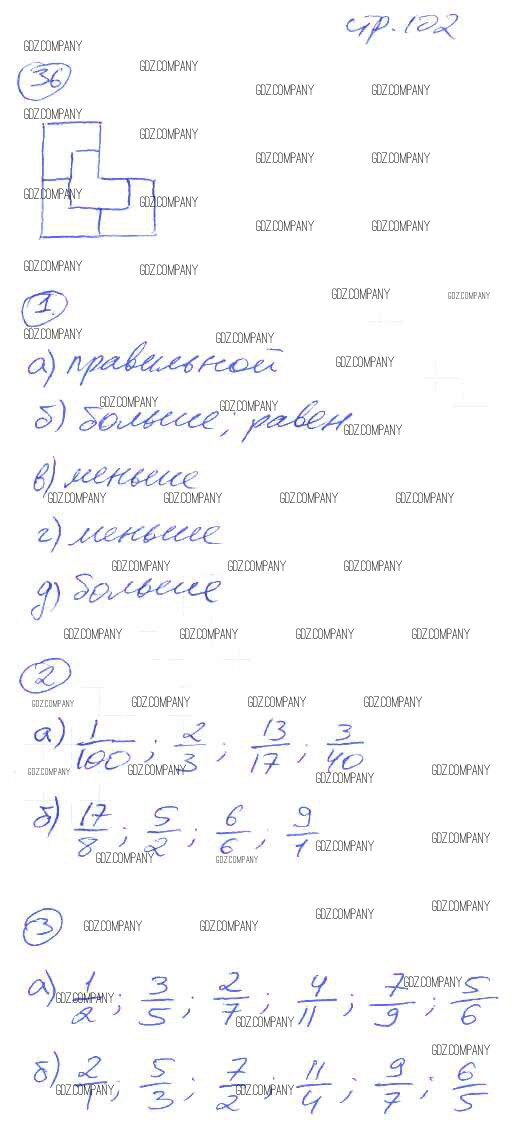 стр. 102
36
1.
а) правильной
б) больше, равен
в) меньше
г) меньше
д) больше
2
а) 1/100 ; 2/3 ; 13/17 ; 3/40
б) 17/8 ; 5/2 ; 6/6 ; 9/1
3
а) 1/2 ; 3/5 ; 2/7 ; 4/11 ; 7/9 ; 5/6
б) 2/1 ; 5/3 ; 7/2 ; 11/4 ; 9/7 ; 6/5
GDZ.COMPANY